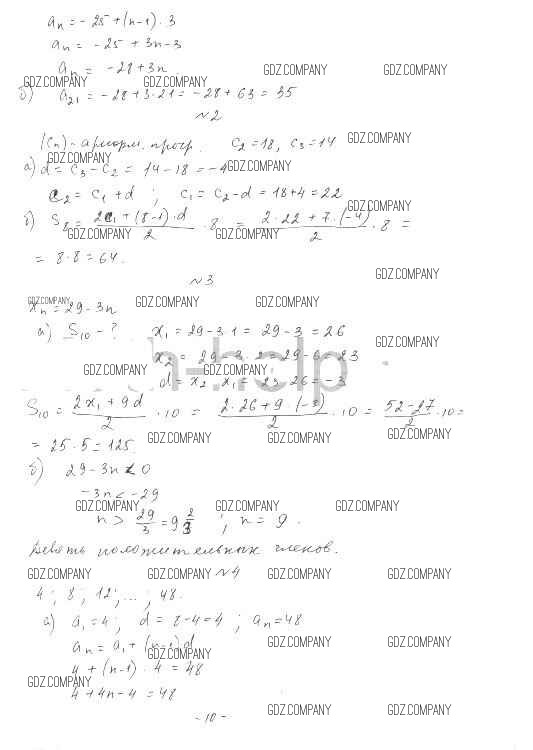 aₙ = -25 + (n-1) · 3
aₙ = -25 + 3n - 3
aₙ = -28 + 3n
GDZ.COMPANY GDZ.COMPANY
GDZ.COMPANY GDZ.COMPANY
б) a₂₁ = -28 + 3·21 = -28 + 63 = 35
№2
(cₙ) - арифм. прогр. c₂ = 18, c₃ = 14
GDZ.COMPANY
GDZ.COMPANY
а) d = c₃ - c₂ = 14 - 18 = -4
GDZ.COMPANY
c₂ = c₁ + d ; c₁ = c₂ - d = 18 + 4 = 22
GDZ.COMPANY
б) S₈ = (2c₁ + (8-1)·d)/2 · 8 = (2·22 + 7·(-4))/2 · 8 =
GDZ.COMPANY GDZ.COMPANY
= 8·8 = 64.
GDZ.COMPANY
№3
GDZ.COMPANY GDZ.COMPANY GDZ.COMPANY
xₙ = 29 - 3n
а) S₁₀ - ? x₁ = 29 - 3·1 = 29 - 3 = 26
GDZ.COMPANY
h-help
x₂ = 29 - 3·2 = 29 - 6 = 23
GDZ.COMPANY GDZ.COMPANY
d = x₂ - x₁ = 23 - 26 = -3
S₁₀ = (2x₁ + 9d)/2 · 10 = (2·26 + 9·(-3))/2 · 10 = (52 - 27)/2 · 10 =
GDZ.COMPANY GDZ.COMPANY GDZ.COMPANY
= 25·5 = 125.
б) 29 - 3n < 0
-3n < -29
GDZ.COMPANY GDZ.COMPANY GDZ.COMPANY
n > 29/3 = 9 2/3 ; n = 9.
Девять положительных членов.
GDZ.COMPANY GDZ.COMPANY GDZ.COMPANY GDZ.COMPANY
№4
4 ; 8 ; 12 ; ... ; 48.
а) a₁ = 4 ; d = 8 - 4 = 4 ; aₙ = 48
GDZ.COMPANY GDZ.COMPANY
aₙ = a₁ + (n-1)d
GDZ.COMPANY
4 + (n-1) · 4 = 48
GDZ.COMPANY
4 + 4n - 4 = 48
GDZ.COMPANY GDZ.COMPANY
- 10 -